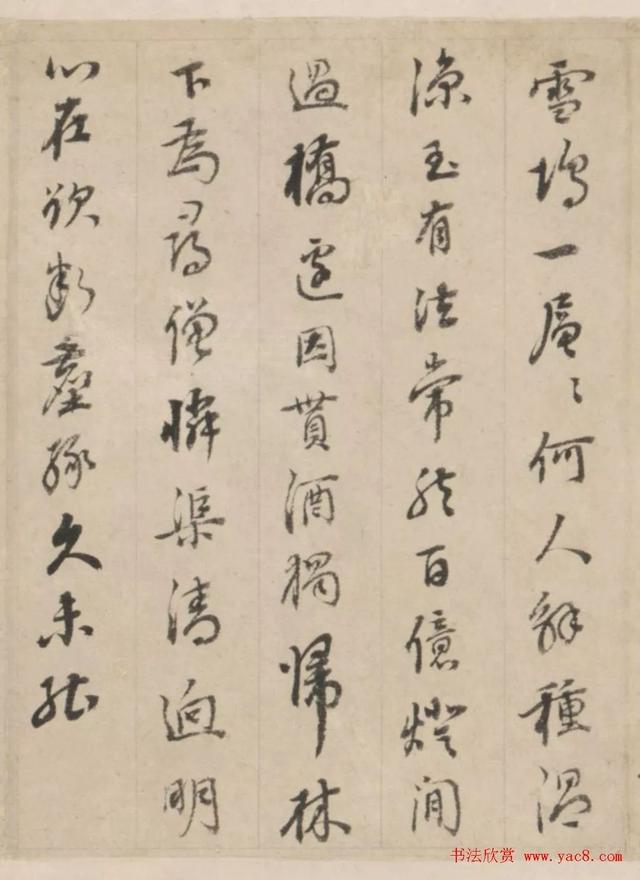 雪塢一層〻何人解種温
涼玉有法常然百億燈閒
過橋邊因貰酒獨歸林
下為尋僧憐渠清迥明
心在欲斷塵緣久未能
书法欣赏 www.yac8.com